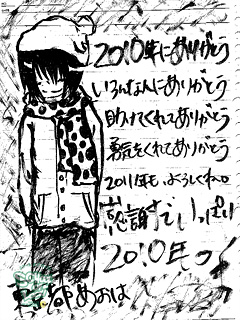 2010年にありがとう
いろんな人にありがとう
助けてくれてありがとう
勇気をくれてありがとう
2011年も、よろしくね
感謝でいっぱい
2010年